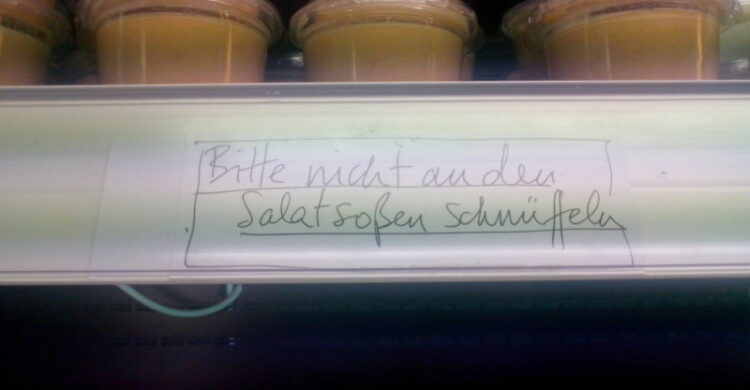 Bitte nicht an den
Salatsoßen schnüffeln